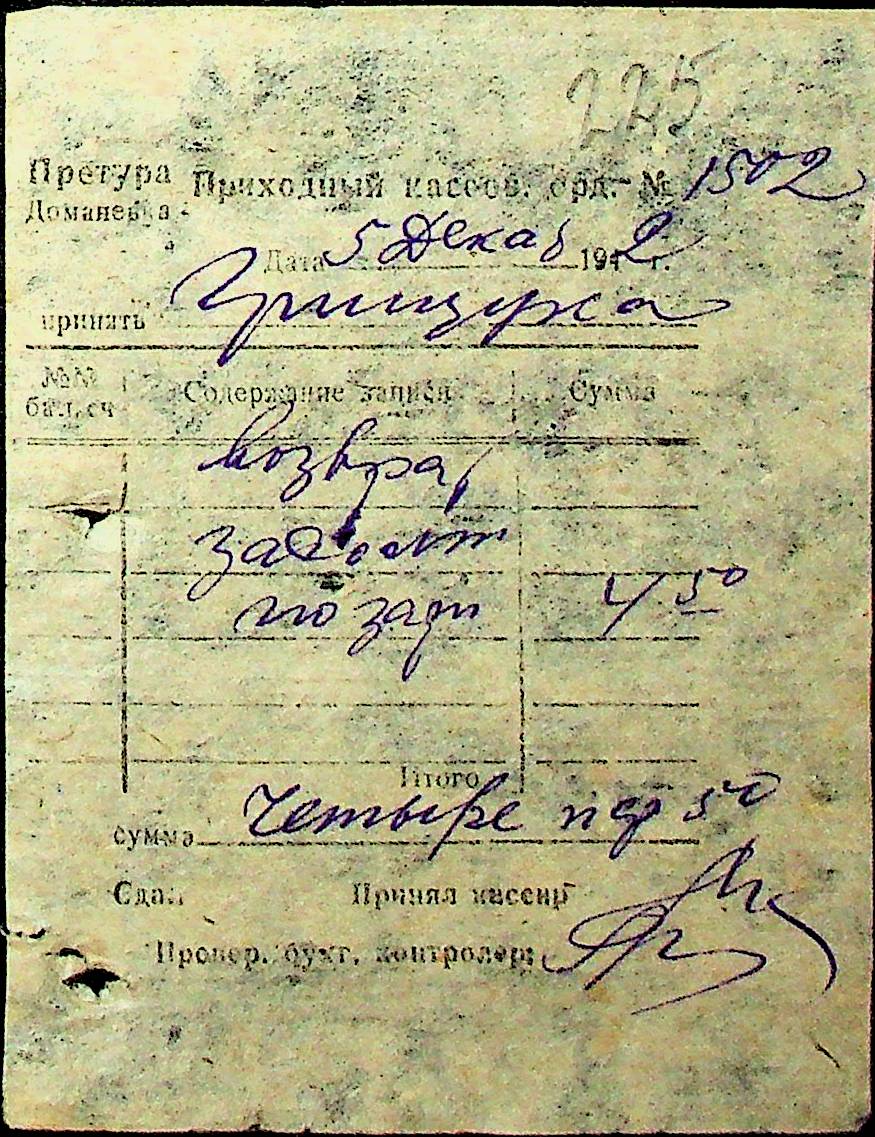 225
Претура Приходный кассов. орд. № 1502
Доманевка
Дата 5 Декаб 194 2 г.
принять Грищука
№№ бал. сч Содержание записи Сумма
возврат
задолж
по зарп 4 50
Итого
сумма Четыре 50
Сдал Принял кассир
Провер. бухг. контролер: